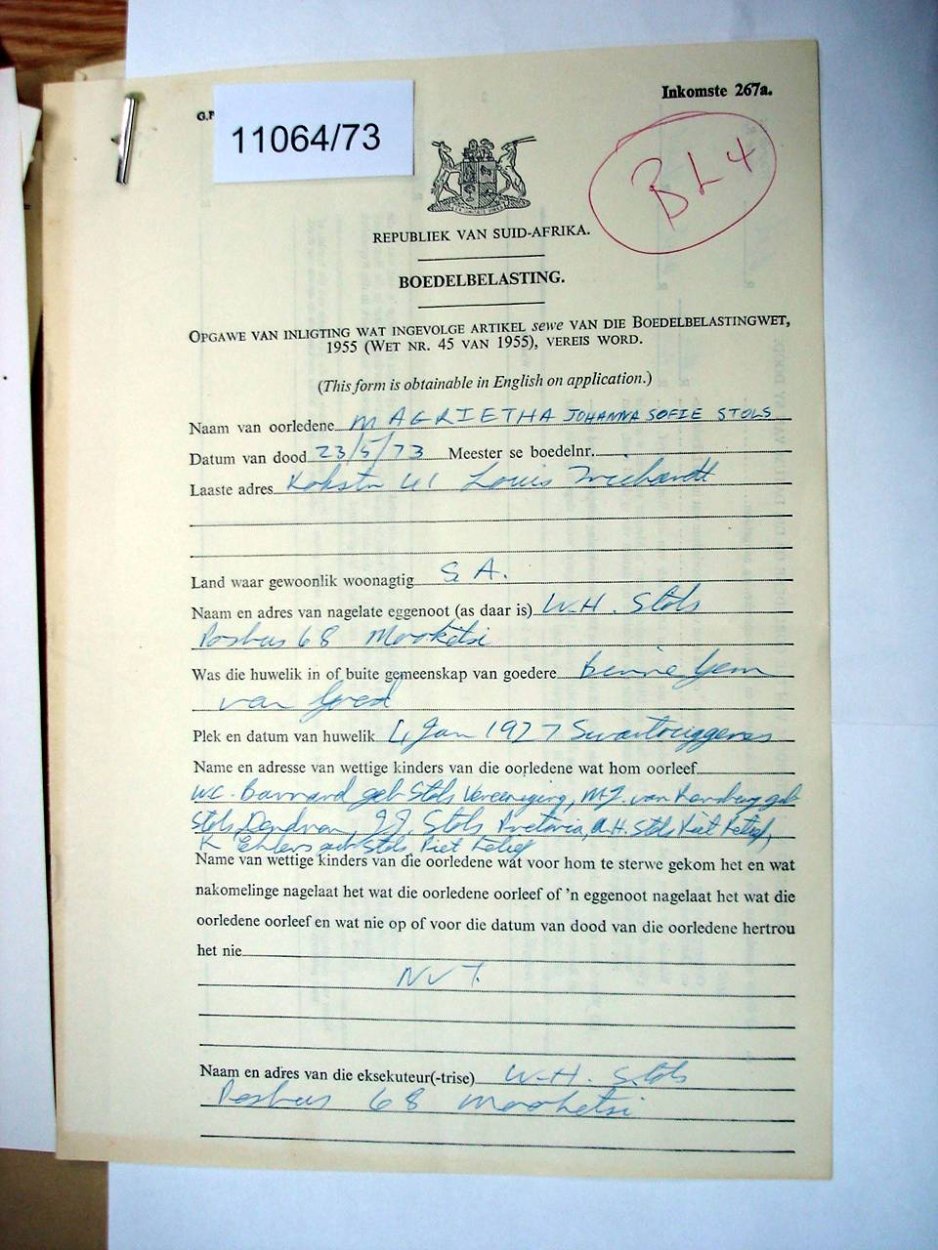 Inkomste 267a.
G.P
11064/73
BL4
REPUBLIEK VAN SUID-AFRIKA.
BOEDELBELASTING.
OPGAWE VAN INLIGTING WAT INGEVOLGE ARTIKEL sewe VAN DIE BOEDELBELASTINGWET,
1955 (WET NR. 45 VAN 1955), VEREIS WORD.
(This form is obtainable in English on application.)
Naam van oorledene MAGRIETHA JOHANNA SOFIE STOLS
Datum van dood 23/5/73 Meester se boedelnr.
Laaste adres Kokstr 41 Louis Trichardt
Land waar gewoonlik woonagtig S.A.
Naam en adres van nagelate eggenoot (as daar is) W.H. Stols
Posbus 68 Mooketsi
Was die huwelik in of buite gemeenskap van goedere binne gem
van goed
Plek en datum van huwelik Jan 1927 Swartruggens
Name en adresse van wettige kinders van die oorledene wat hom oorleef
W.C. Barnard geb Stols Vereeniging, M.J. van Rensburg geb
Stols, Dendron, J.J. Stols Pretoria, A.H. Stols Piet Retief,
K Ehlers geb Stols Piet Retief
Name van wettige kinders van die oorledene wat voor hom te sterwe gekom het en wat
nakomelinge nagelaat het wat die oorledene oorleef of 'n eggenoot nagelaat het wat die
oorledene oorleef en wat nie op of voor die datum van dood van die oorledene hertrou
het nie
NVT.
Naam en adres van die eksekuteur(-trise) W.H. Stols
Posbus 68 Mooketsi